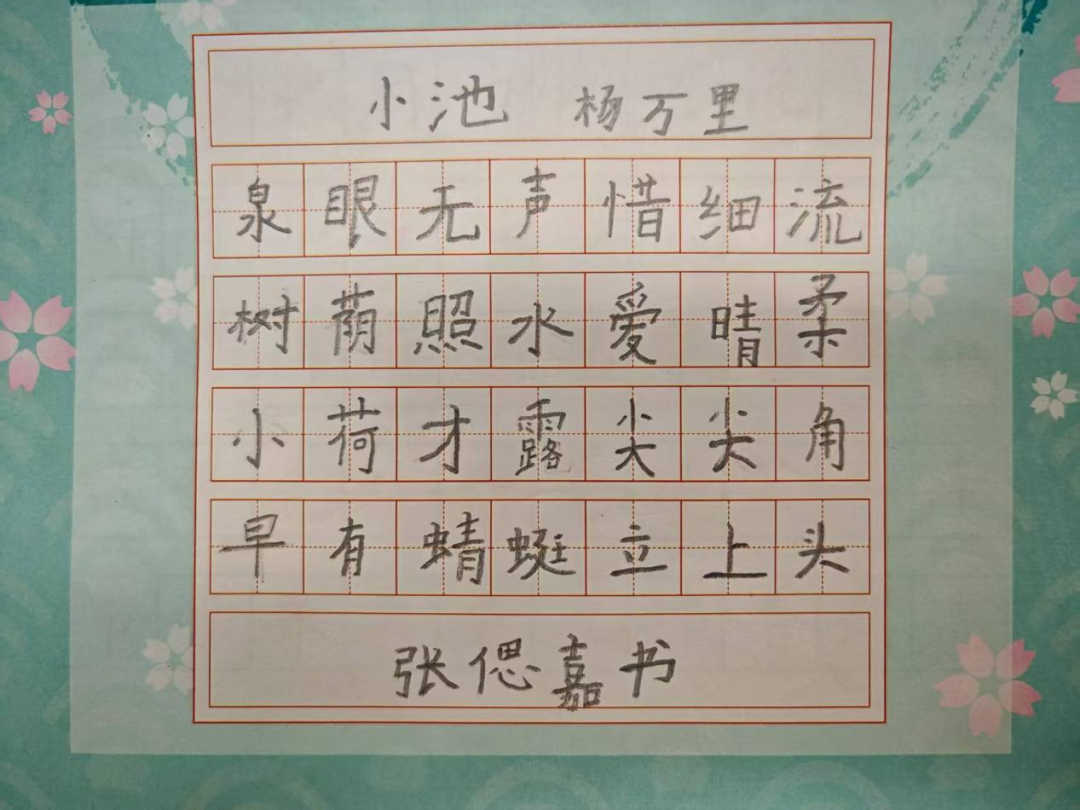 小池 杨万里
泉眼无声惜细流
树荫照水爱晴柔
小荷才露尖尖角
早有蜻蜓立上头
张偲嘉书